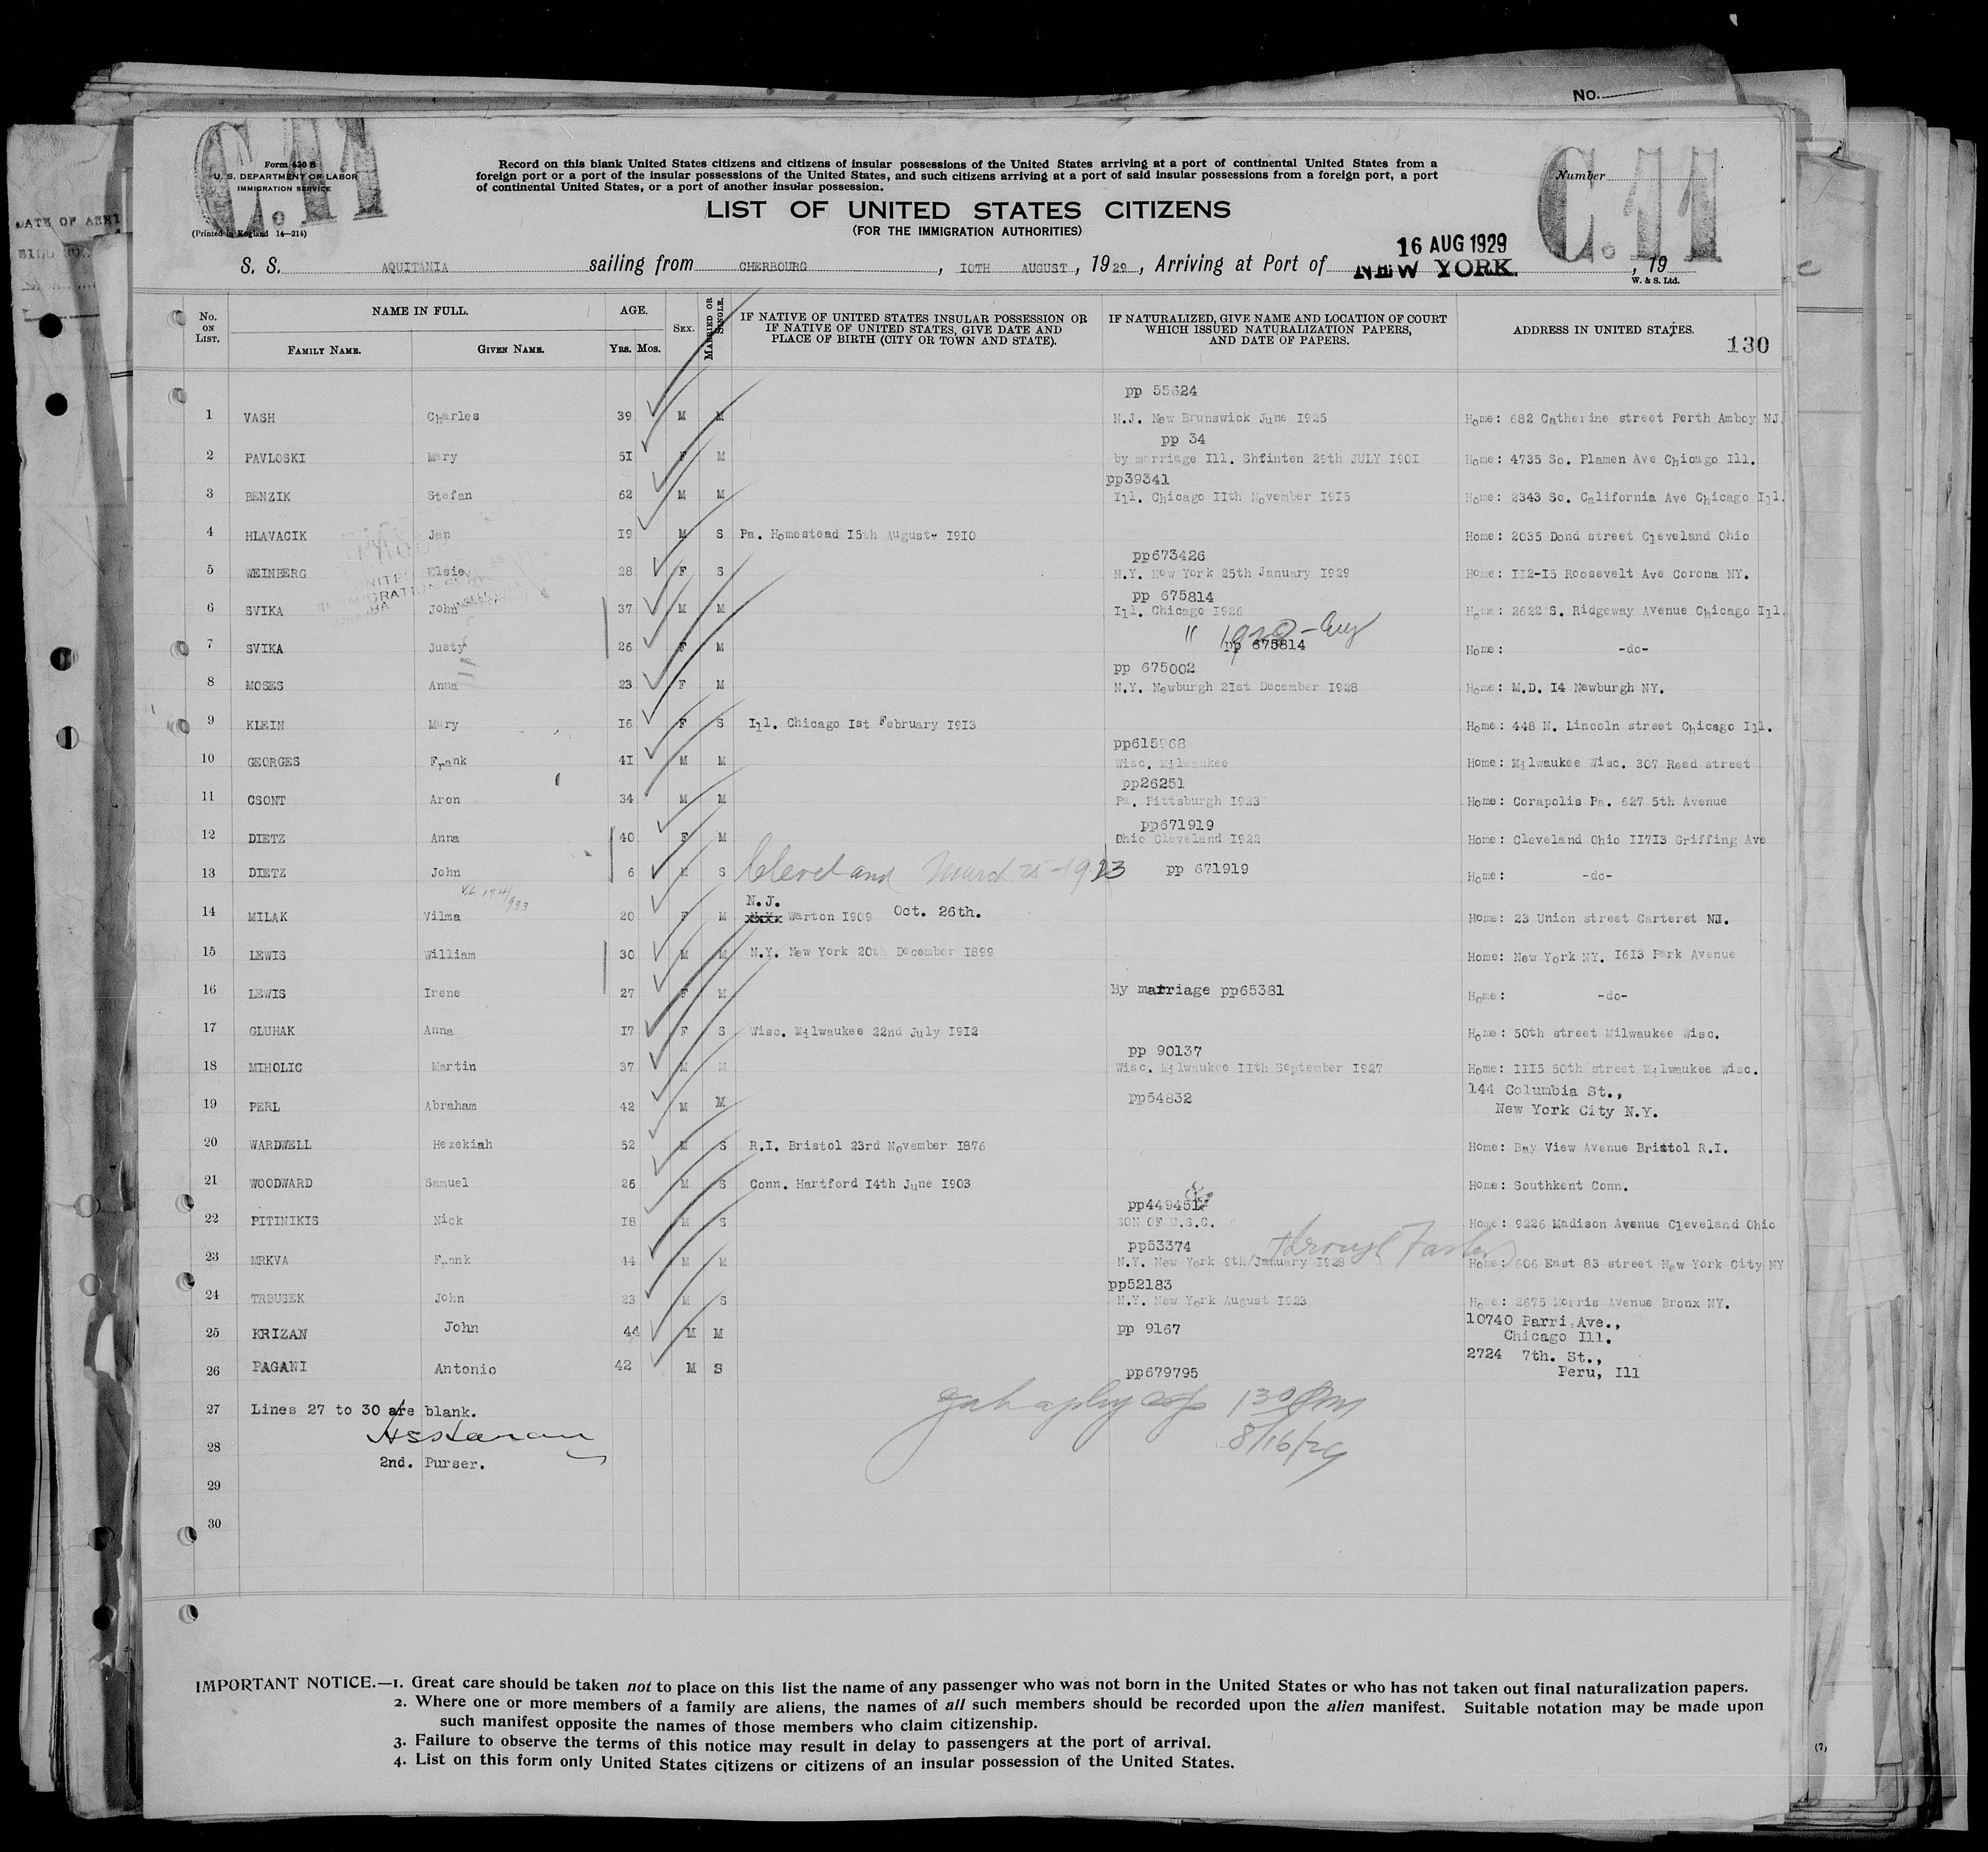 No.
C.11
C.11
Form 630 B
U. S. DEPARTMENT OF LABOR
IMMIGRATION SERVICE
(Printed in England 14—214)
Record on this blank United States citizens and citizens of insular possessions of the United States arriving at a port of continental United States from a
foreign port or a port of the insular possessions of the United States, and such citizens arriving at a port of said insular possessions from a foreign port, a port
of continental United States, or a port of another insular possession.
Number
LIST OF UNITED STATES CITIZENS
(FOR THE IMMIGRATION AUTHORITIES)
S. S. AQUITANIA sailing from CHERBOURG, IOTH AUGUST, 1929, Arriving at Port of NEW YORK. 16 AUG 1929, 19
W. & S. Ltd.
No. ON LIST. NAME IN FULL. FAMILY NAME. GIVEN NAME. AGE. YRS. MOS. SEX. MARRIED OR SINGLE. IF NATIVE OF UNITED STATES INSULAR POSSESSION OR IF NATIVE OF UNITED STATES, GIVE DATE AND PLACE OF BIRTH (CITY OR TOWN AND STATE). IF NATURALIZED, GIVE NAME AND LOCATION OF COURT WHICH ISSUED NATURALIZATION PAPERS, AND DATE OF PAPERS. ADDRESS IN UNITED STATES. 130
pp 55624
1 VASH Charles 39 M M N.J. New Brunswick June I925 Home: 682 Catherine street Perth Amboy NJ.
pp 34
2 PAVLOSKI Mary 5I F M by marriage Ill. Shfinten 29th JULY I90I Home: 4735 So. Plamen Ave Chicago Ill.
pp39341
3 BENZIK Stefan 62 M M Ill. Chicago IIth November I9I5 Home: 2343 So. California Ave Chicago Ill.
4 HLAVACIK Jan I9 M S Pa. Homestead I5th August- I9I0 Home: 2035 Dond street Cleveland Ohio
pp673426
5 WEINBERG Elsie 28 F S N.Y. New York 25th January I929 Home: II2-I5 Roosevelt Ave Corona NY.
pp 675814
6 SVIKA John 37 M M Ill. Chicago I926 Home: 2622 S. Ridgeway Avenue Chicago Ill.
7 SVIKA Justy 26 F M " pp 675814 Home: -do-
pp 675002
8 MOSES Anna 23 F M N.Y. Newburgh 2Ist December I928 Home: M.D. I4 Newburgh NY.
9 KLEIN Mary I6 F S Ill. Chicago Ist February I9I3 Home: 448 N. Lincoln street Chicago Ill.
pp615968
10 GEORGES Frank 4I M M Wisc. Milwaukee Home: Milwaukee Wisc. 307 Reed street
pp26251
11 CSONT Aron 34 M M Pa. Pittsburgh I923 Home: Corapolis Pa. 627 5th Avenue
pp671919
12 DIETZ Anna 40 F M Ohio Cleveland I922 Home: Cleveland Ohio II7I3 Griffing Ave
13 DIETZ John 6 M S Cleveland March 25-1923 pp 671919 Home: -do-
N.J.
14 MILAK Vilma 20 F M Warton I909 Oct. 26th. Home: 23 Union street Carteret NJ.
15 LEWIS William 30 M M N.Y. New York 20th December I899 Home: New York NY. I6I3 Park Avenue
16 LEWIS Irene 27 F M By marriage pp65381 Home: -do-
17 GLUHAK Anna I7 F S Wisc. Milwaukee 22nd July I9I2 Home: 50th street Milwaukee Wisc.
pp 90137
18 MIHOLIC Martin 37 M M Wisc. Milwaukee IIth September I927 Home: III5 50th street Milwaukee Wisc.
19 PERL Abraham 42 M M pp54832 144 Columbia St.,
New York City N.Y.
20 WARDWELL Hezekiah 52 M S R.I. Bristol 23rd November I876 Home: Bay View Avenue Bristol R.I.
21 WOODWARD Samuel 26 M S Conn. Hartford I4th June I903 Home: Southkent Conn.
pp449451
22 PITINIKIS Nick I8 M S SON OF U.S.C. Home: 9226 Madison Avenue Cleveland Ohio
pp53374 through Father
23 MRKVA Frank 44 M M N.Y. New York 9th/January I928 Home: 606 East 83 street New York City NY
pp52183
24 TRBUSEK John 23 M S N.Y. New York August I923 Home: 2675 Morris Avenue Bronx NY.
25 KRIZAN John 44 M M pp 9167 10740 Parri Ave.,
Chicago Ill.
26 PAGANI Antonio 42 M S pp679795 2724 7th. St.,
Peru, Ill
27 Lines 27 to 30 are blank.
28
2nd. Purser.
8/16/29
29
30
IMPORTANT NOTICE.—1. Great care should be taken not to place on this list the name of any passenger who was not born in the United States or who has not taken out final naturalization papers.
2. Where one or more members of a family are aliens, the names of all such members should be recorded upon the alien manifest. Suitable notation may be made upon
such manifest opposite the names of those members who claim citizenship.
3. Failure to observe the terms of this notice may result in delay to passengers at the port of arrival.
4. List on this form only United States citizens or citizens of an insular possession of the United States.
(7)